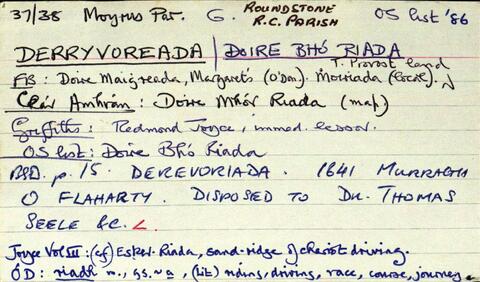 37/38 Moyrus Par. G. ROUNDSTONE R.C. PARISH OS list '86
DERRYVOREADA | DOIRE BHÓ RIADA
T. Provost land
FB: Doire Maigreada, Margaret's (O'Don). Morriada (local). √
Clár Amhrán: Doire Mhór Riada (map)
Griffiths: Redmond Joyce, immed. lessor.
OS list: Doire Bhó Riada
BSD. p. 15. DEREVORIADA. 1641 MURRAGH
O FLAHARTY. DISPOSED TO DR. THOMAS
SEELE &C.
Joyce Vol III: (cf) Esker-Riada, sand-ridge of chariot driving.
ÓD: riadh m., gs. ~a, (lit) riding, driving, race, course, journey